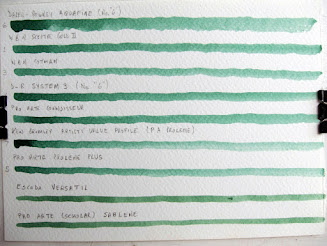 DALER-ROWNEY AQUAFINE (No. 6)
W & N SCEPTRE GOLD II
W & N COTMAN
D-R SYSTEM 3 (No "6")
PRO ARTE CONNOISSEUR
KEN BROMLEY ARTISTS' VALUE PROFILE (P.A. PROLENE)
PRO ARTE PROLENE PLUS
ESCODA VERSATIL
PRO ARTE (SCHOLAR) SABLENE